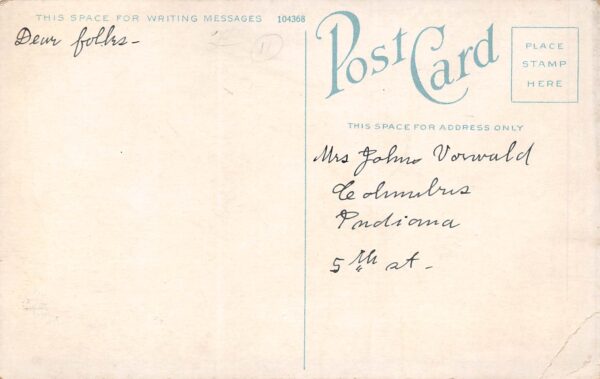 THIS SPACE FOR WRITING MESSAGES 104368
Dear folks-
1
Post Card
PLACE
STAMP
HERE
THIS SPACE FOR ADDRESS ONLY
Mrs John Vorwald
Columbus
Indiana
5th st-